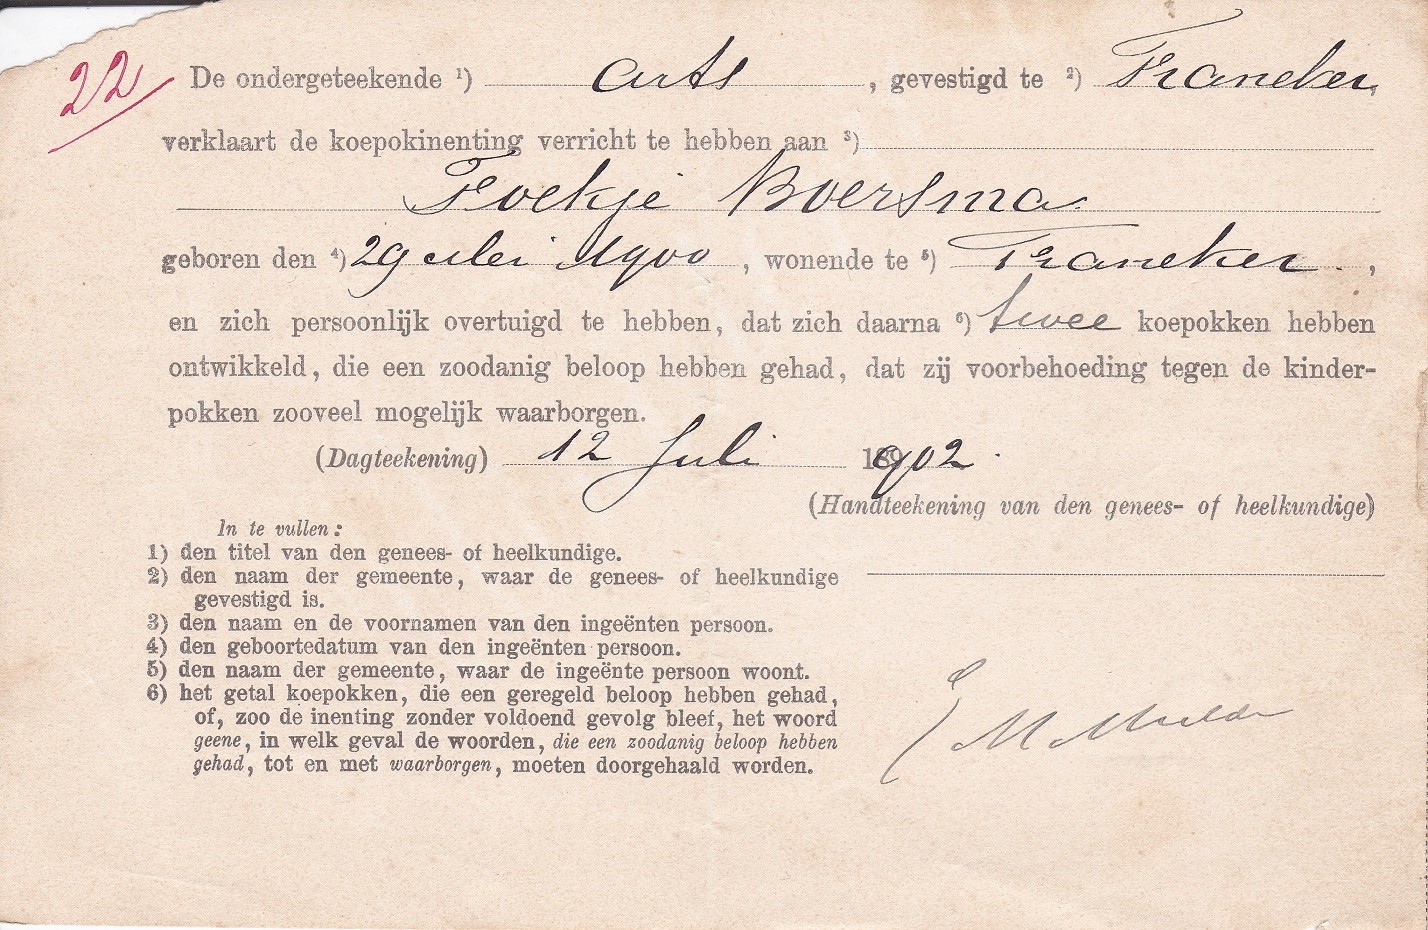 22
De ondergeteekende ¹) arts, gevestigd te ²) Franeker,
verklaart de koepokinenting verricht te hebben aan ³)
Foekje Boersma
geboren den ⁴) 29 Mei 1900, wonende te ⁵) Franeker,
en zich persoonlijk overtuigd te hebben, dat zich daarna ⁶) twee koepokken hebben
ontwikkeld, die een zoodanig beloop hebben gehad, dat zij voorbehoeding tegen de kinder-
pokken zooveel mogelijk waarborgen.
(Dagteekening) 12 Juli 1902.
(Handteekening van den genees- of heelkundige)
In te vullen:
1) den titel van den genees- of heelkundige.
2) den naam der gemeente, waar de genees- of heelkundige
gevestigd is.
3) den naam en de voornamen van den ingeënten persoon.
4) den geboortedatum van den ingeënten persoon.
5) den naam der gemeente, waar de ingeënte persoon woont.
6) het getal koepokken, die een geregeld beloop hebben gehad,
of, zoo de inenting zonder voldoend gevolg bleef, het woord
geene, in welk geval de woorden, die een zoodanig beloop hebben
gehad, tot en met waarborgen, moeten doorgehaald worden.